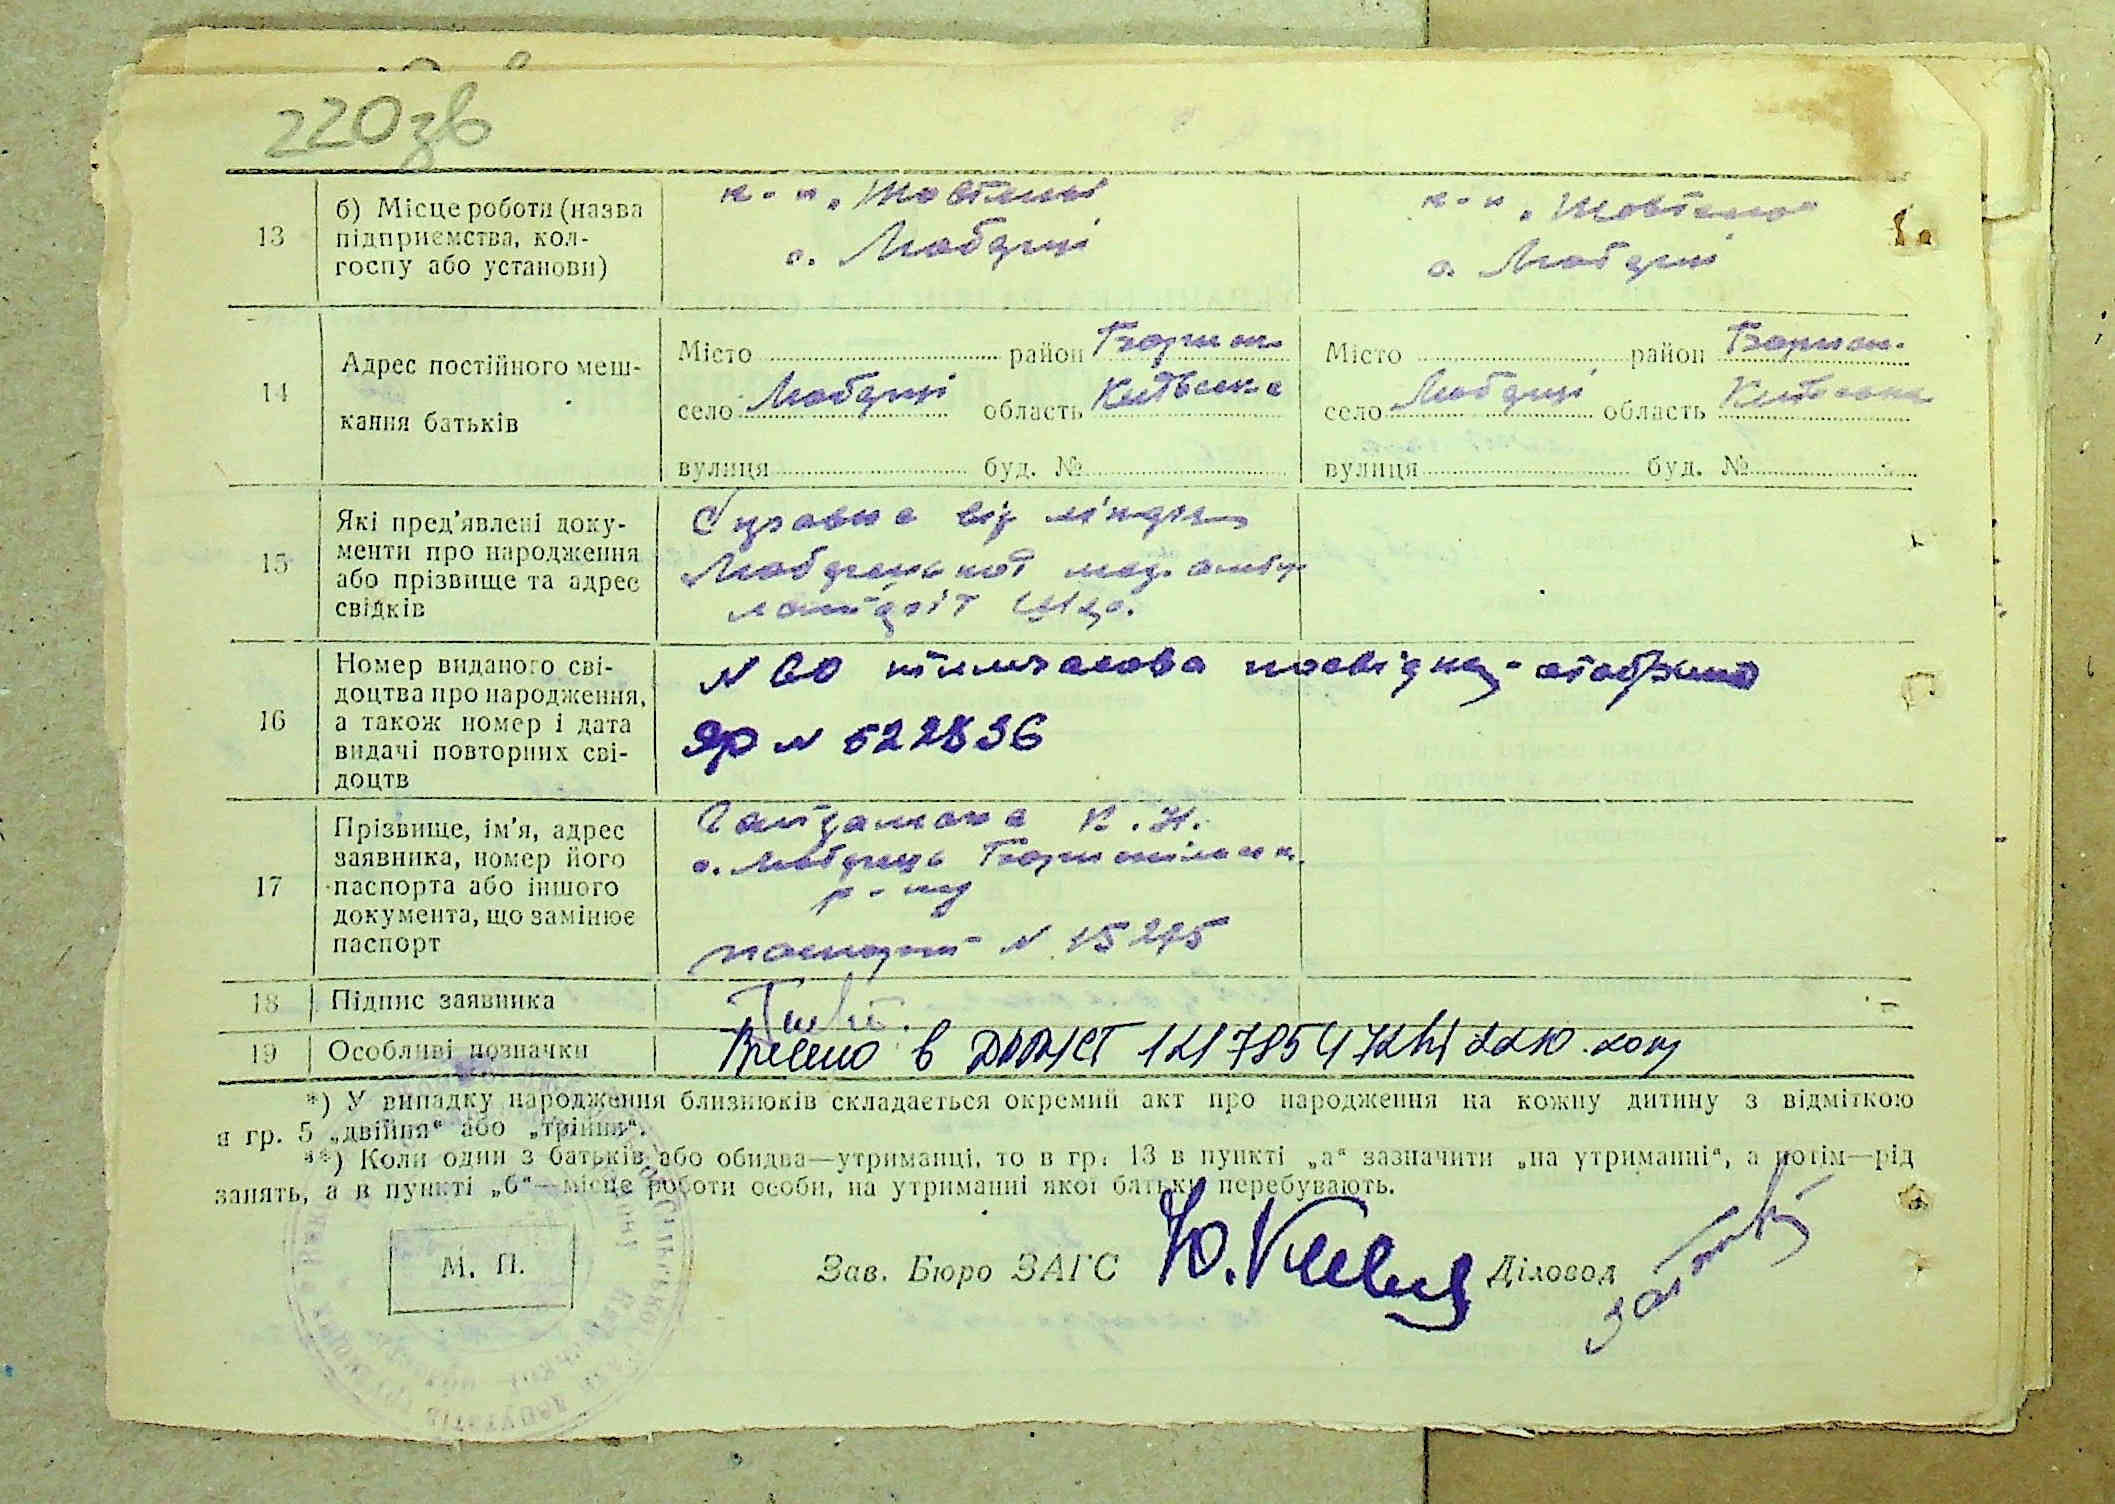 220зв
13
б) Місце роботи (назва
підприємства, кол-
госпу або установи)
к-п „Жовтень"
с. Любарці
к-п „Жовтень"
с. Любарці
14
Адрес постійного меш-
кання батьків
Місто район Бориспіл.
село Любарці область Київська
вулиця буд. №
Місто район Бориспіл.
село Любарці область Київська
вулиця буд. №
15
Які пред'явлені доку-
менти про народження
або прізвище та адрес
свідків
Справка від
Любарецької мед.
16
Номер виданого сві-
доцтва про народження,
а також номер і дата
видачі повторних сві-
доцтв
N 60 тимчасова посвідка
ЯР N 522836
17
Прізвище, ім'я, адрес
заявника, номер його
паспорта або іншого
документа, що замінює
паспорт
Гайдамака К. Н.
с. Любарці Бориспільськ.
р-ну
паспорт N 15275
18
Підпис заявника
19
Особливі позначки
Внесено в ДРАЦСГ
*) У випадку народження близнюків складається окремий акт про народження на кожну дитину з відміткою
в гр. 5 „двійня" або „трійня".
**) Коли один з батьків або обидва—утриманці, то в гр. 13 в пункті „а" зазначити „на утриманні", а потім—рід
занять, а в пункті „б"—місце роботи особи, на утриманні якої батьки перебувають.
М. П.
Зав. Бюро ЗАГС
Діловод